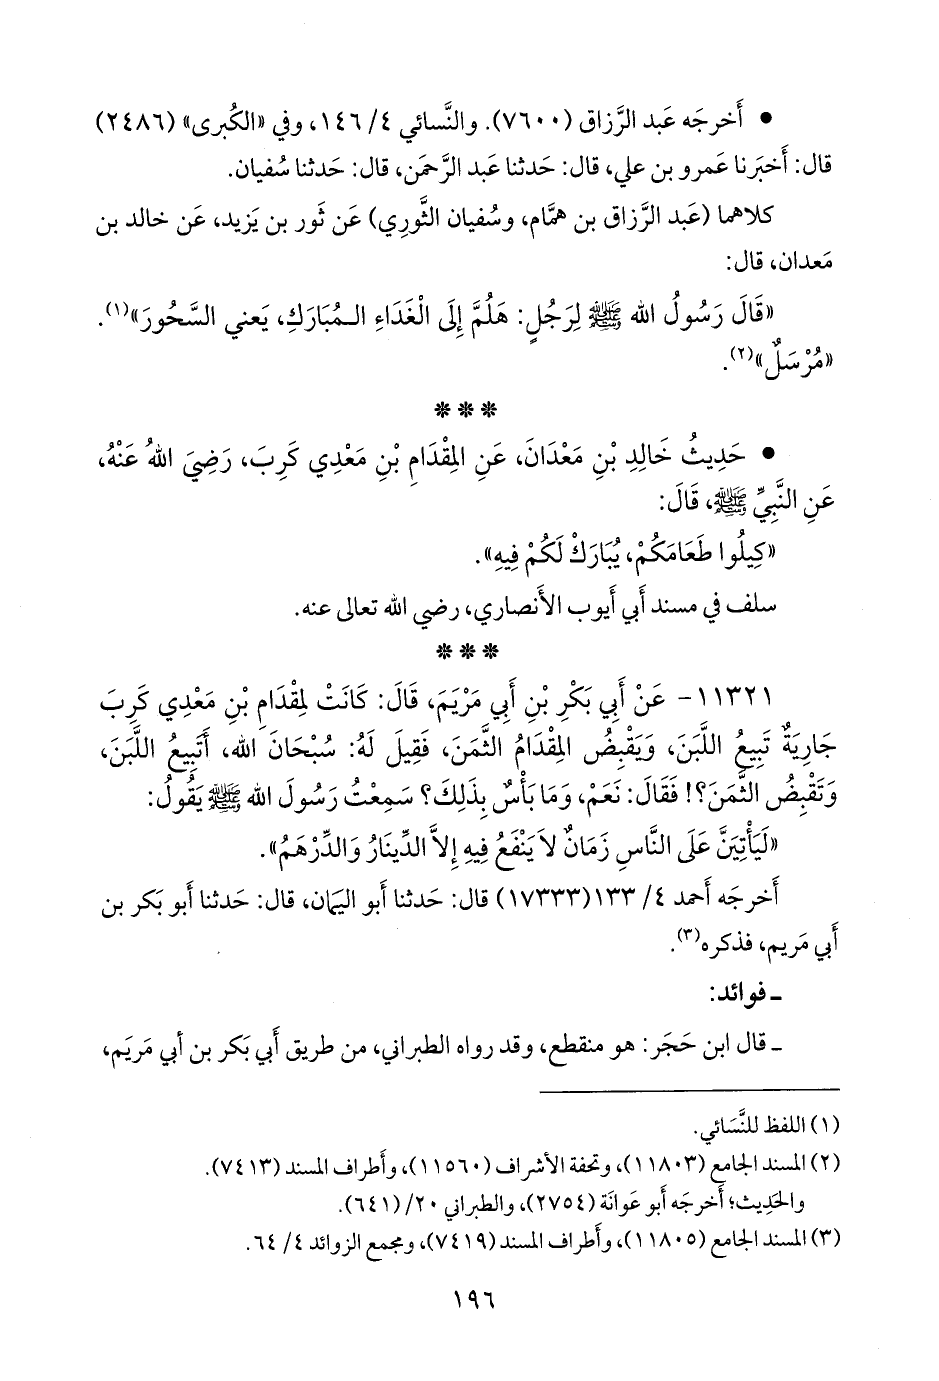 • أَخرجَه عَبد الرَّزاق (٧٦٠٠). والنَّسائي ٤/ ١٤٦، وفي «الكُبرى» (٢٤٨٦)
قال: أَخبَرنا عَمرو بن علي، قال: حَدثنا عَبد الرَّحمَن، قال: حَدثنا سُفيان.
كلاهما (عَبد الرَّزاق بن همَّام، وسُفيان الثَّورِي) عَن ثَور بن يَزيد، عَن خالد بن
مَعدان، قال:
«قَالَ رَسُولُ الله ﷺ لِرَجُلٍ: هَلُمَّ إِلَى الْغَدَاءِ الـمُبَارَكِ، يَعني السَّحُورَ»(١).
«مُرْسَلٌ»(٢).
***
• حَدِيثُ خَالِدِ بْنِ مَعْدَانَ، عَنِ المِقْدَامِ بْنِ مَعْدِي كَرِبَ، رَضِيَ اللهُ عَنْهُ،
عَنِ النَّبِيِّ ﷺ، قَالَ:
«كِيلُوا طَعَامَكُمْ، يُبَارَكْ لَكُمْ فِيهِ».
سلف في مسند أَبي أَيوب الأَنصاري، رضي الله تعالى عنه.
***
١١٣٢١- عَنْ أَبِي بَكْرِ بْنِ أَبِي مَرْيَمَ، قَالَ: كَانَتْ لِمِقْدَامِ بْنِ مَعْدِي كَرِبَ
جَارِيَةٌ تَبِيعُ اللَّبَنَ، وَيَقْبِضُ المِقْدَامُ الثَّمَنَ، فَقِيلَ لَهُ: سُبْحَانَ الله، أَتَبِيعُ اللَّبَنَ،
وَتَقْبِضُ الثَّمَنَ؟! فَقَالَ: نَعَمْ، وَمَا بَأْسٌ بِذَلِكَ؟ سَمِعْتُ رَسُولَ الله ﷺ يَقُولُ:
«لَيَأْتِيَنَّ عَلَى النَّاسِ زَمَانٌ لاَ يَنْفَعُ فِيهِ إِلاَّ الدِّينَارُ وَالدِّرْهَمُ».
أَخرجَه أَحمد ٤/ ١٣٣(١٧٣٣٣) قال: حَدثنا أَبو اليَمان، قال: حَدثنا أَبو بَكر بن
أَبي مَريم، فذكره(٣).
ـ فوائد:
ـ قال ابن حَجَر: هو منقطع، وقد رواه الطبراني، من طريق أَبي بَكر بن أَبي مَريَم،
(١) اللفظ للنَّسَائي.
(٢) المسند الجامع (١١٨٠٣)، وتحفة الأَشراف (١١٥٦٠)، وأَطراف المسند (٧٤١٣).
والحَدِيث؛ أَخرجَه أَبو عَوانَة (٢٧٥٤)، والطبراني ٢٠/ (٦٤١).
(٣) المسند الجامع (١١٨٠٥)، وأَطراف المسند (٧٤١٩)، ومجمع الزوائد ٤/ ٦٤.
١٩٦